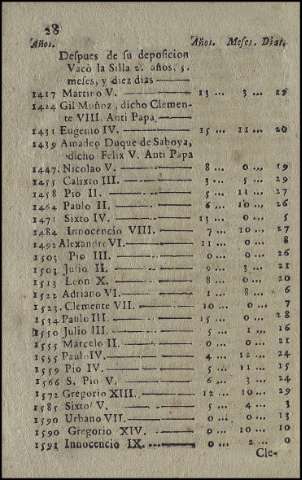 28
Años. Años. Meses. Dias.
Despues de su deposicion
Vacò la Silla 2. años, 5.
meses, y diez dias
1417 Martino V. 13 ... 3 ...
1424 Gil Muñoz, dicho Clemen-
te VIII. Anti Papa.
1431 Eugenio IV. 15 ... 11 ... 20
1439 Amadeo Duque de Saboya,
dicho Felix V. Anti Papa
1447. Nicolao V. 8 ... 0 ... 19
1455 Calixto III. 3 .. 5 ... 29
1458 Pio II. 5 ... 11 ... 27
1464 Paulo II. 6 ... 10 ... 26
1471 Sixto IV. 13 ... 0 ... 5
1484 Innocencio VIII. 7 ... 10 ... 27
1492 Alexandro VI. 11 ... 0 ... 8
1503 Pio III. 0 ... 0 ... 26
1503 Julio II. 9 ... 3 ... 21
1513 Leon X. 8 ... 0 ... 20
1522 Adriano VI. 1 ... 8 ... 6
1523. Clemente VII. 10 ... 0 ... 7
1534 Paulo III. 15 ... 0 ... 28
1550 Julio III. 5 ... 1 ... 16
1555 Marcelo II. 0 ... 0 ... 21
1555 Paulo IV. 4 ... 12 ... 24
1559 Pio IV. 5 ... 11 ... 15
1566 S. Pio V. 6 ... 3 ... 24
1572 Gregorio XIII. 12 ... 10 ... 29
1585 Sixto V. 5 ... 4 ... 3
1590 Urbano VII. 0 ... 0 ... 13
1590 Gregorio XIV. 0 ... 10 ... 10
1591 Innocencio IX. 0 ... 2 ... 0
Cle-